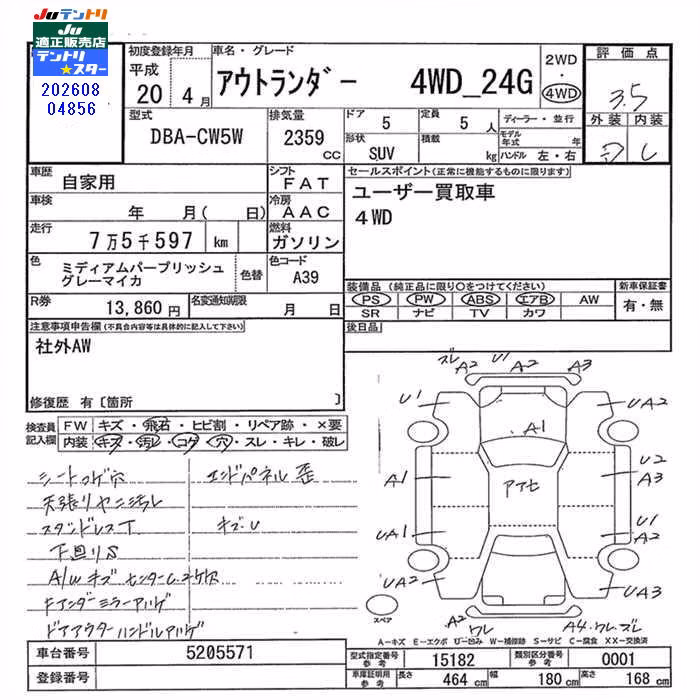 Juテントリ
Ju
適正販売店
テントリ
★スター
202608
04856
初度登録年月
平成
20 4月
車名・グレード
アウトランダー 4WD_24G
2WD
・
4WD
評価点
3.5
外装 内装
型式
DBA-CW5W
排気量
2359
CC
ドア 5
定員 5 人
形状
SUV
積載
kg
ディーラー・並行
モデル
年式 年
ハンドル 左・右
車歴
自家用
シフト
FAT
セールスポイント(正常に機能するものに限ります)
ユーザー買取車
4WD
車検
年 月( 日)
冷房
AAC
走行
7万5千597 km
燃料
ガソリン
色
ミディアムパープリッシュ
グレーマイカ
色替
色コード
A39
装備品(純正品に限り○をつけてください)
PS PW ABS エアB AW
SR ナビ TV カワ
新車保証書
有・無
R券
13,860円
名変通知期限
月 日
後日品
注意事項申告欄(不具合内容等は具体的に記入して下さい)
社外AW
修復歴 有〔箇所 〕
検査員
記入欄
FW キズ・飛石・ヒビ割・リペア跡・×要
内装 キズ・汚レ・コゲ・穴・スレ・キレ・破レ
シートコゲ穴 エンドパネル歪
天張りヤニ汚レ
スタンドレスT キズ・U
下回りS
A/Wキズ
Fアンダーミラーアリゲ
ドアアウターハンドルアリゲ
ズレ A2 U1 A2 A3
U1 UA2
A1
A1 アアセ U2
A3
UA1 U1
A2
UA2 UA3
スペア
A2 ワレ A4.ワレ.ズレ
A-キズ E-エクボ U-凹み W-補修跡 S-サビ C-腐食 XX-交換済
車台番号 5205571
登録番号
型式指定番号
参考
15182
類別区分番号
参考
0001
車庫証明用
参考
長さ 464 cm 幅 180 cm 高さ 168 cm